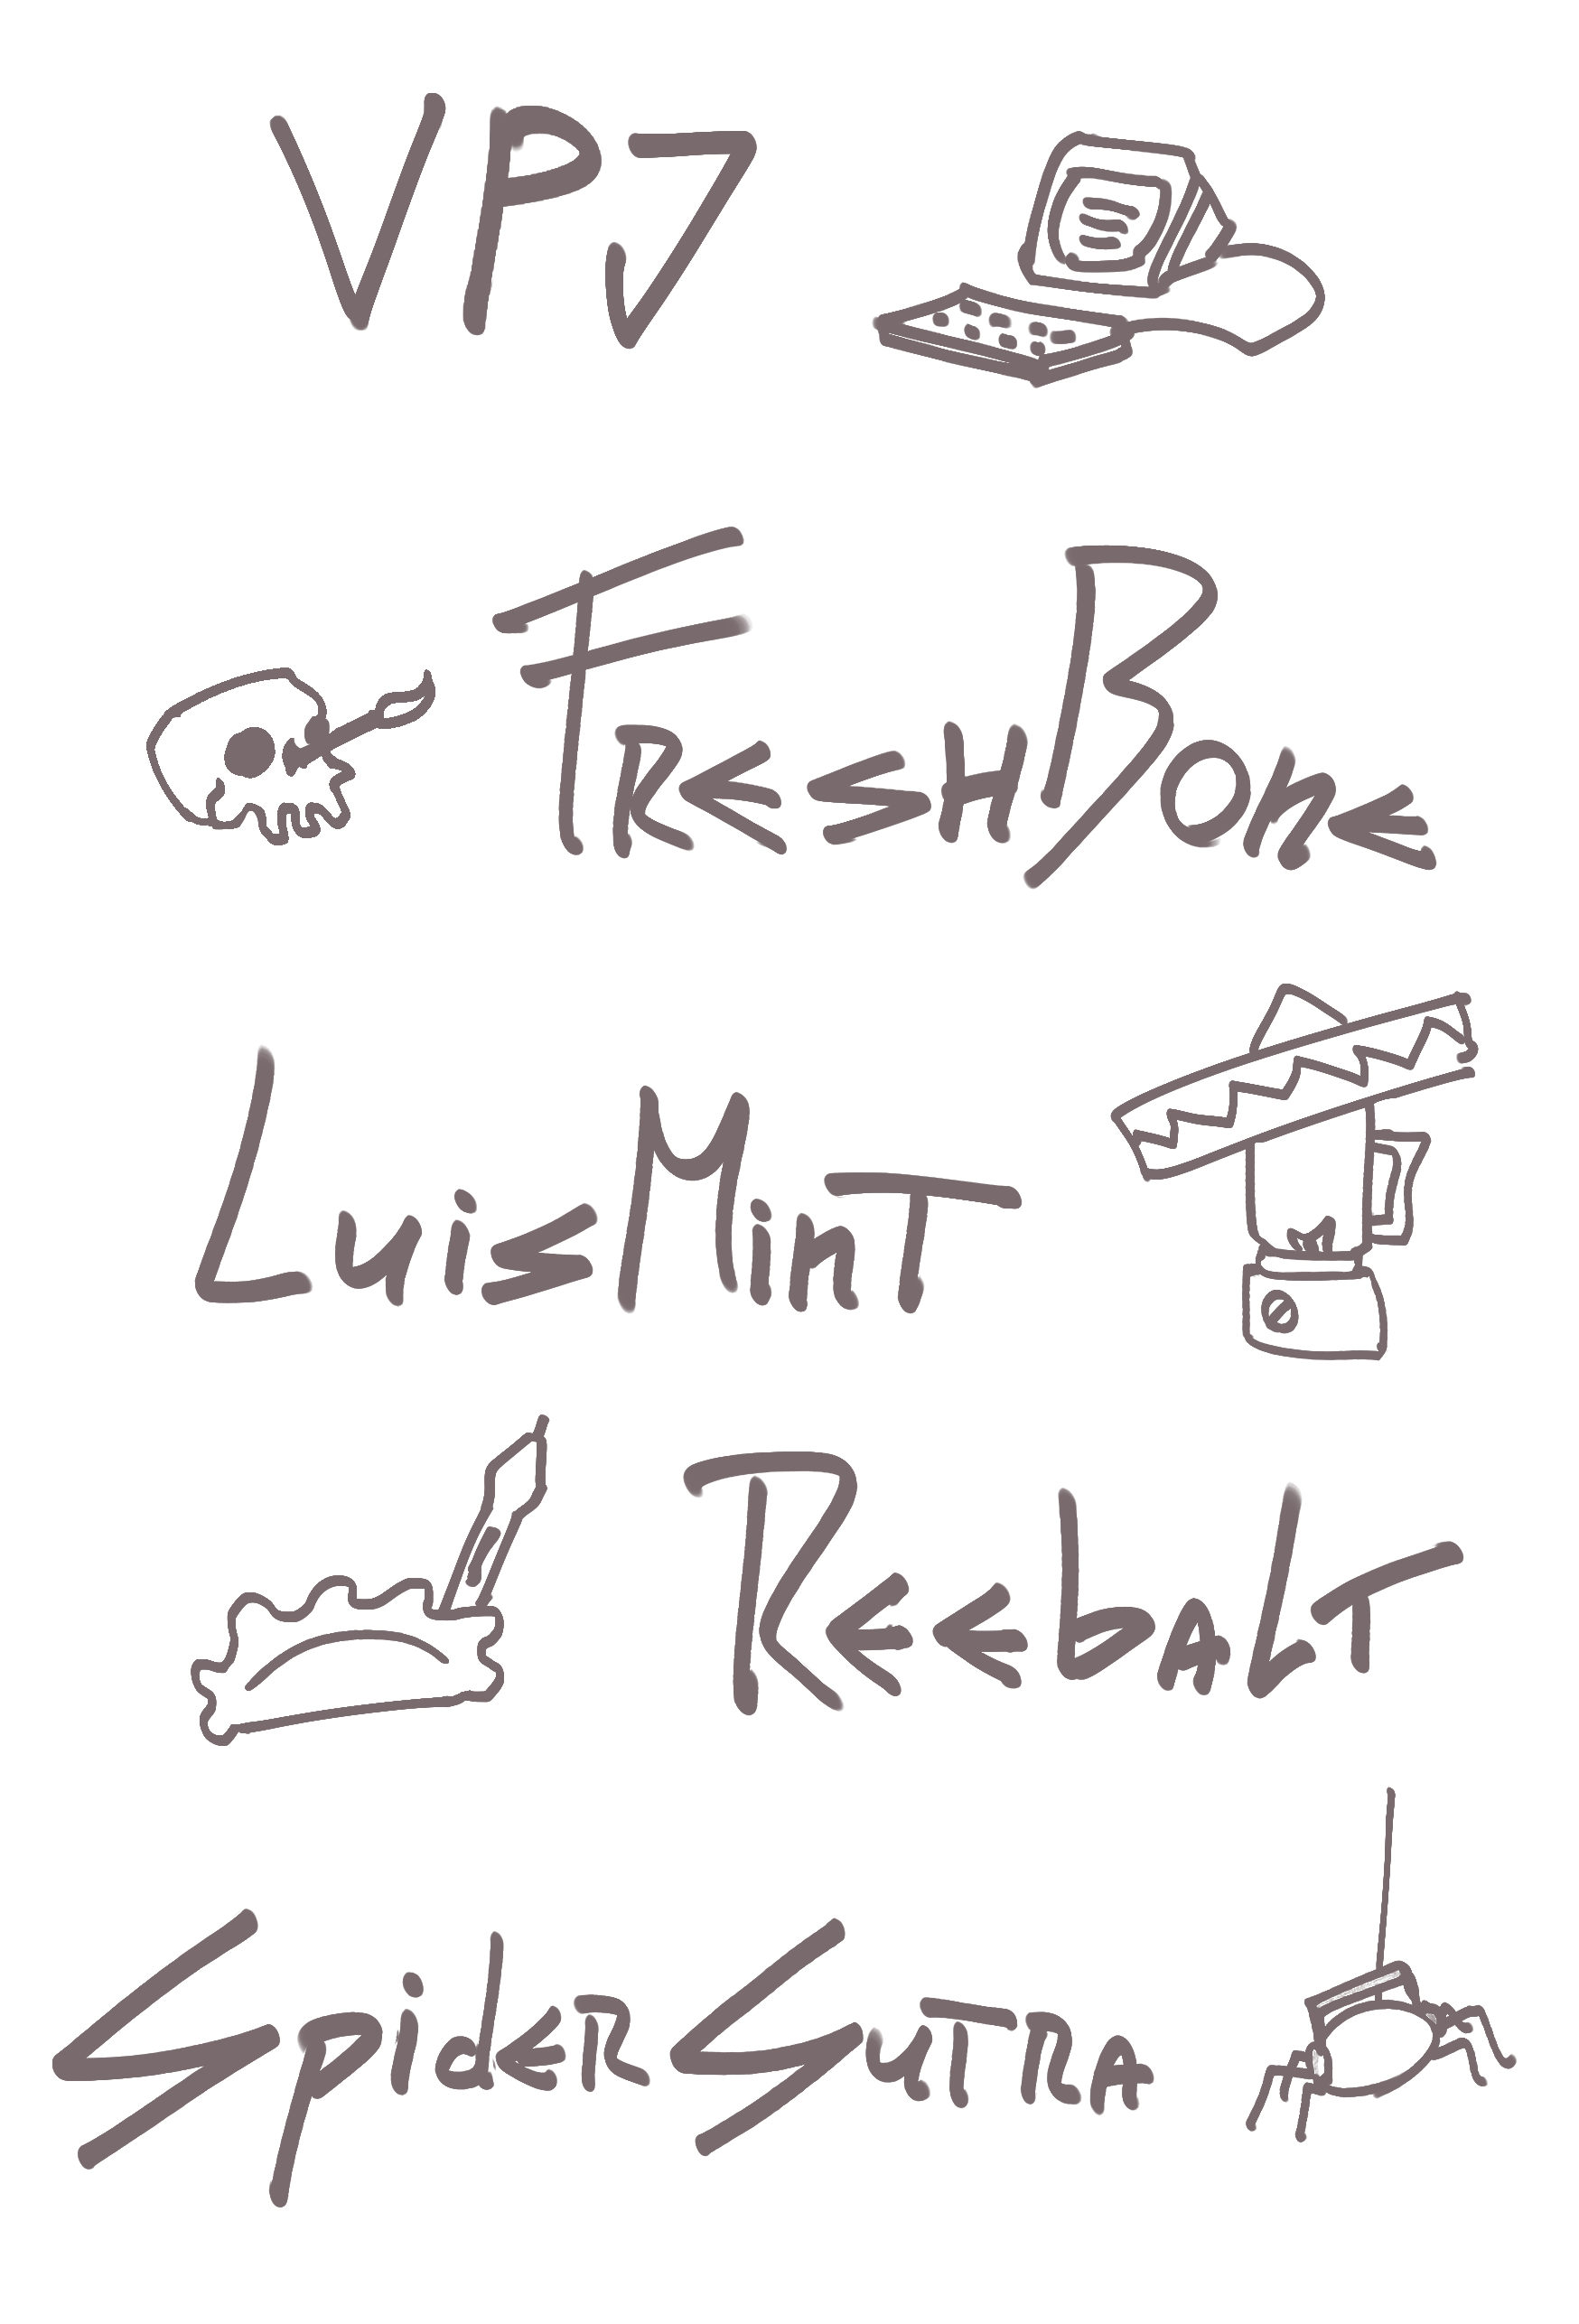 VPJ
FRESHBONE
LuisMinT
ReebALT
SpideRSuTRA